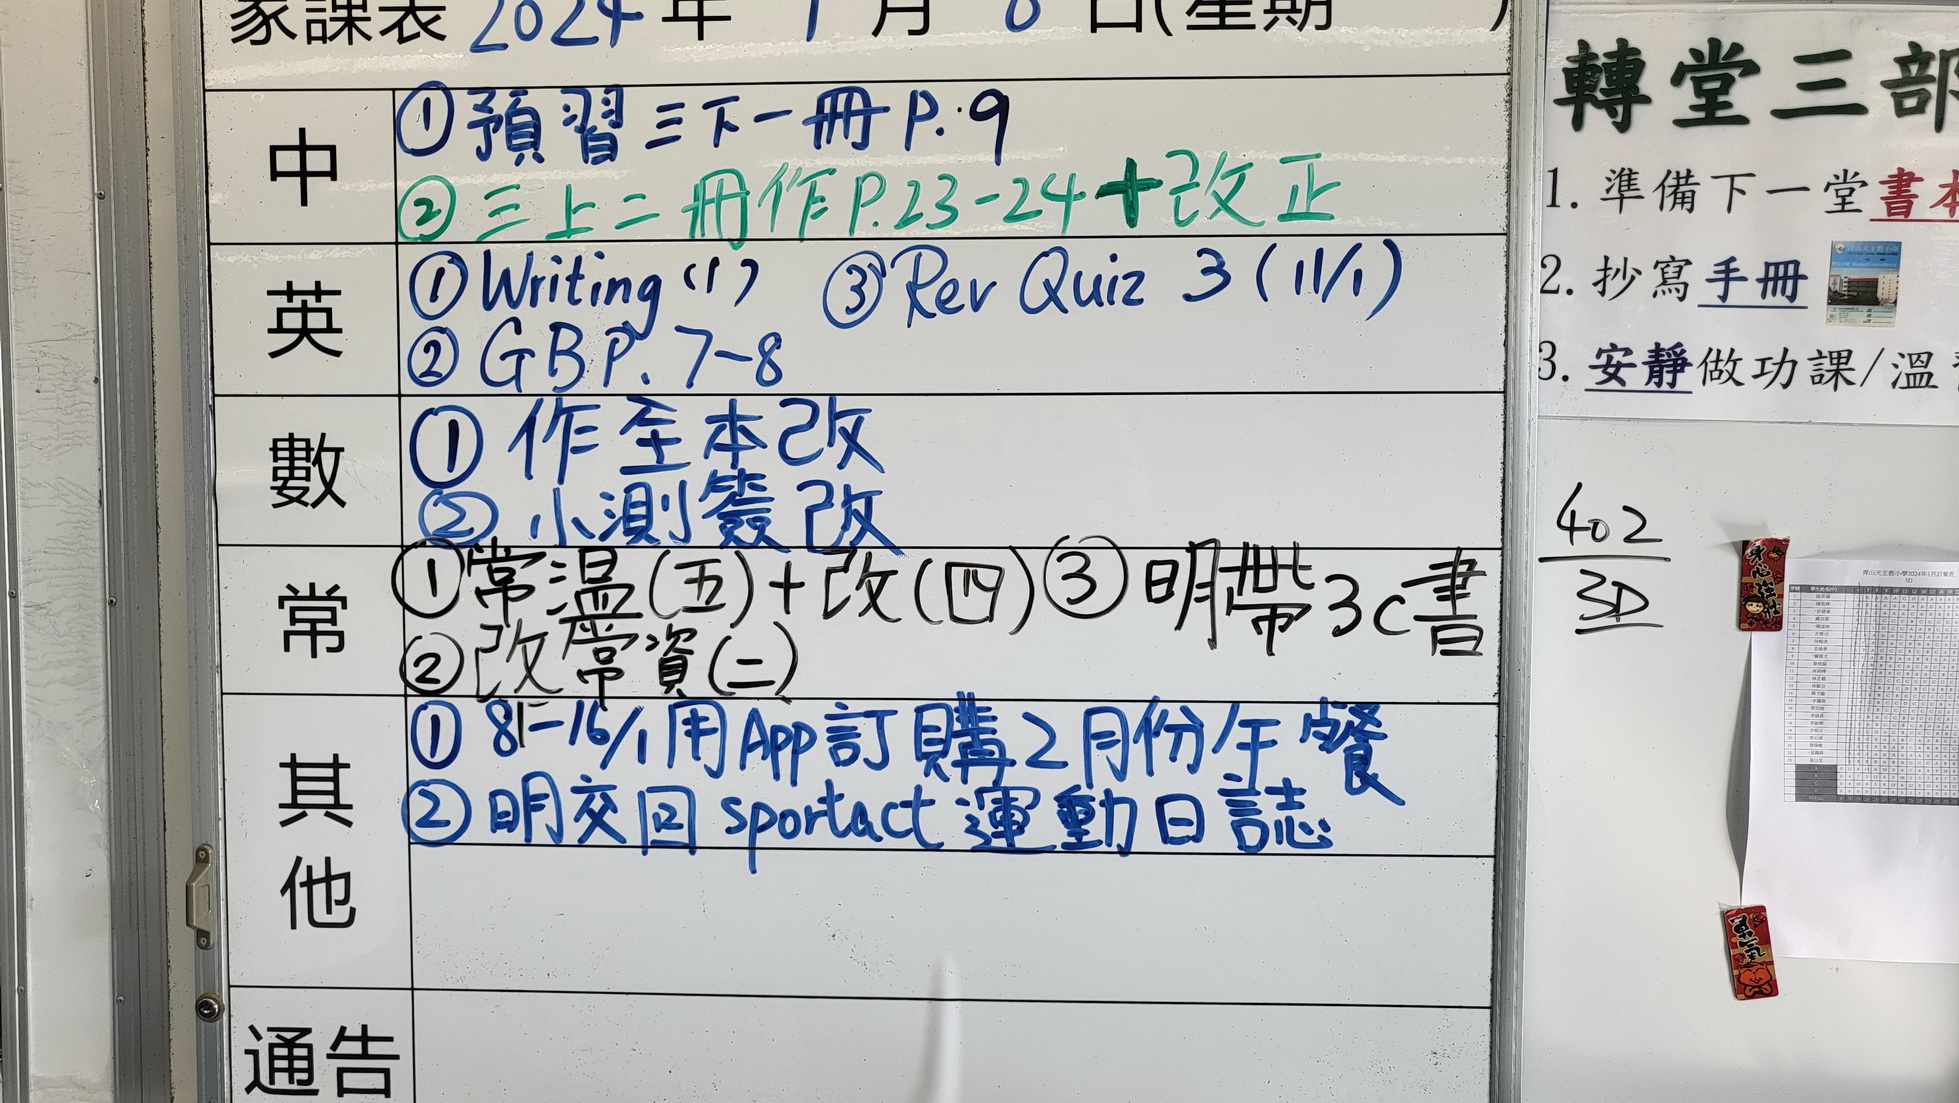 家課表 2024 年 1 月 8 日(星期 )
中
①預習三下一冊P.9
②三上二冊作P.23-24+改正
英
①Writing (1) ③Rev Quiz 3 (11/1)
②GB P. 7-8
數
① 作至本改
② 小測簽改
常
①常溫(五)+改(四)③明帶3C書
②改常資(二)
其他
① 8/1-16/1用App訂購2月份午餐
②明交回sportact運動日誌
通告
轉堂三部
1. 準備下一堂書本
2. 抄寫手冊
3. 安靜做功課/溫習
402
3D
青山天主教小學2024年1月訂餐表
3D
勇氣